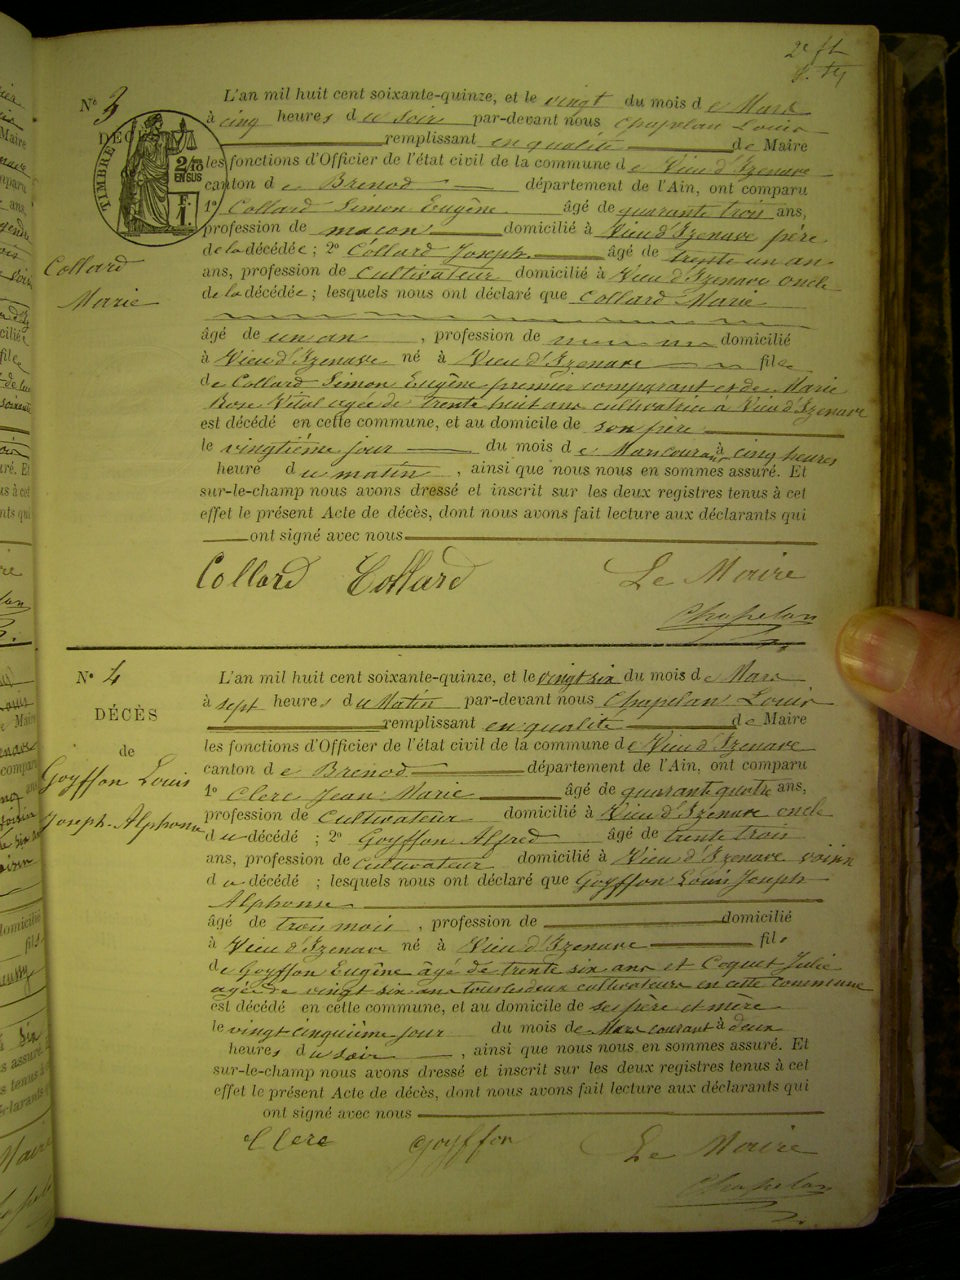 2e ft
N° 3
DÉCÈS
TIMBRE
2/10
EN SUS
1 F.
Collard
Marie
L'an mil huit cent soixante-quinze, et le vingt du mois de Mars
à cinq heures du soir par-devant nous Chapelan Louis
remplissant en qualité de Maire
les fonctions d'Officier de l'état civil de la commune de Vieu d'Izenave
canton de Brenod département de l'Ain, ont comparu
1° Collard Simon Eugène âgé de quarante trois ans,
profession de maçon domicilié à Vieu d'Izenave père
de la décédée ; 2° Collard Joseph âgé de trente un an
ans, profession de cultivateur domicilié à Vieu d'Izenave oncle
de la décédée ; lesquels nous ont déclaré que Collard Marie
âgé de un an , profession de domicilié
à Vieu d'Izenave né à Vieu d'Izenave fille
de Collard Simon Eugène premier comparant et de Marie
Rose Vital agée de trente huit ans cultivatrice à Vieu d'Izenave
est décédé en cette commune, et au domicile de son père
le vingtième jour du mois de Mars courant à cinq heures
heure du matin , ainsi que nous nous en sommes assuré. Et
sur-le-champ nous avons dressé et inscrit sur les deux registres tenus à cet
effet le présent Acte de décès, dont nous avons fait lecture aux déclarants qui
ont signé avec nous
Collard Collard Le Maire
Chapelan
N° 4
DÉCÈS
de
Goyffon Louis
Joseph-Alphonse
L'an mil huit cent soixante-quinze, et le vingt six du mois de Mars
à sept heures du Matin par-devant nous Chapelan Louis
remplissant en qualité de Maire
les fonctions d'Officier de l'état civil de la commune de Vieu d'Izenave
canton de Brenod département de l'Ain, ont comparu
1° Clerc Jean Marie âgé de quarante quatre ans,
profession de Cultivateur domicilié à Vieu d'Izenave oncle
du décédé ; 2° Goyffon Alfred âgé de trente trois
ans, profession de cultivateur domicilié à Vieu d'Izenave voisin
du décédé ; lesquels nous ont déclaré que Goyffon Louis Joseph
Alphonse
âgé de trois mois , profession de domicilié
à Vieu d'Izenave né à Vieu d'Izenave fils
de Goyffon Eugène âgé de trente six ans et Coquet Julie
agée de vingt six ans tous les deux cultivateurs en cette commune
est décédé en cette commune, et au domicile de ses père et mère
le vingt cinquième jour du mois de Mars courant à deux
heures du soir , ainsi que nous nous en sommes assuré. Et
sur-le-champ nous avons dressé et inscrit sur les deux registres tenus à cet
effet le présent Acte de décès, dont nous avons fait lecture aux déclarants qui
ont signé avec nous
Clerc Goyffon Le Maire
Chapelan